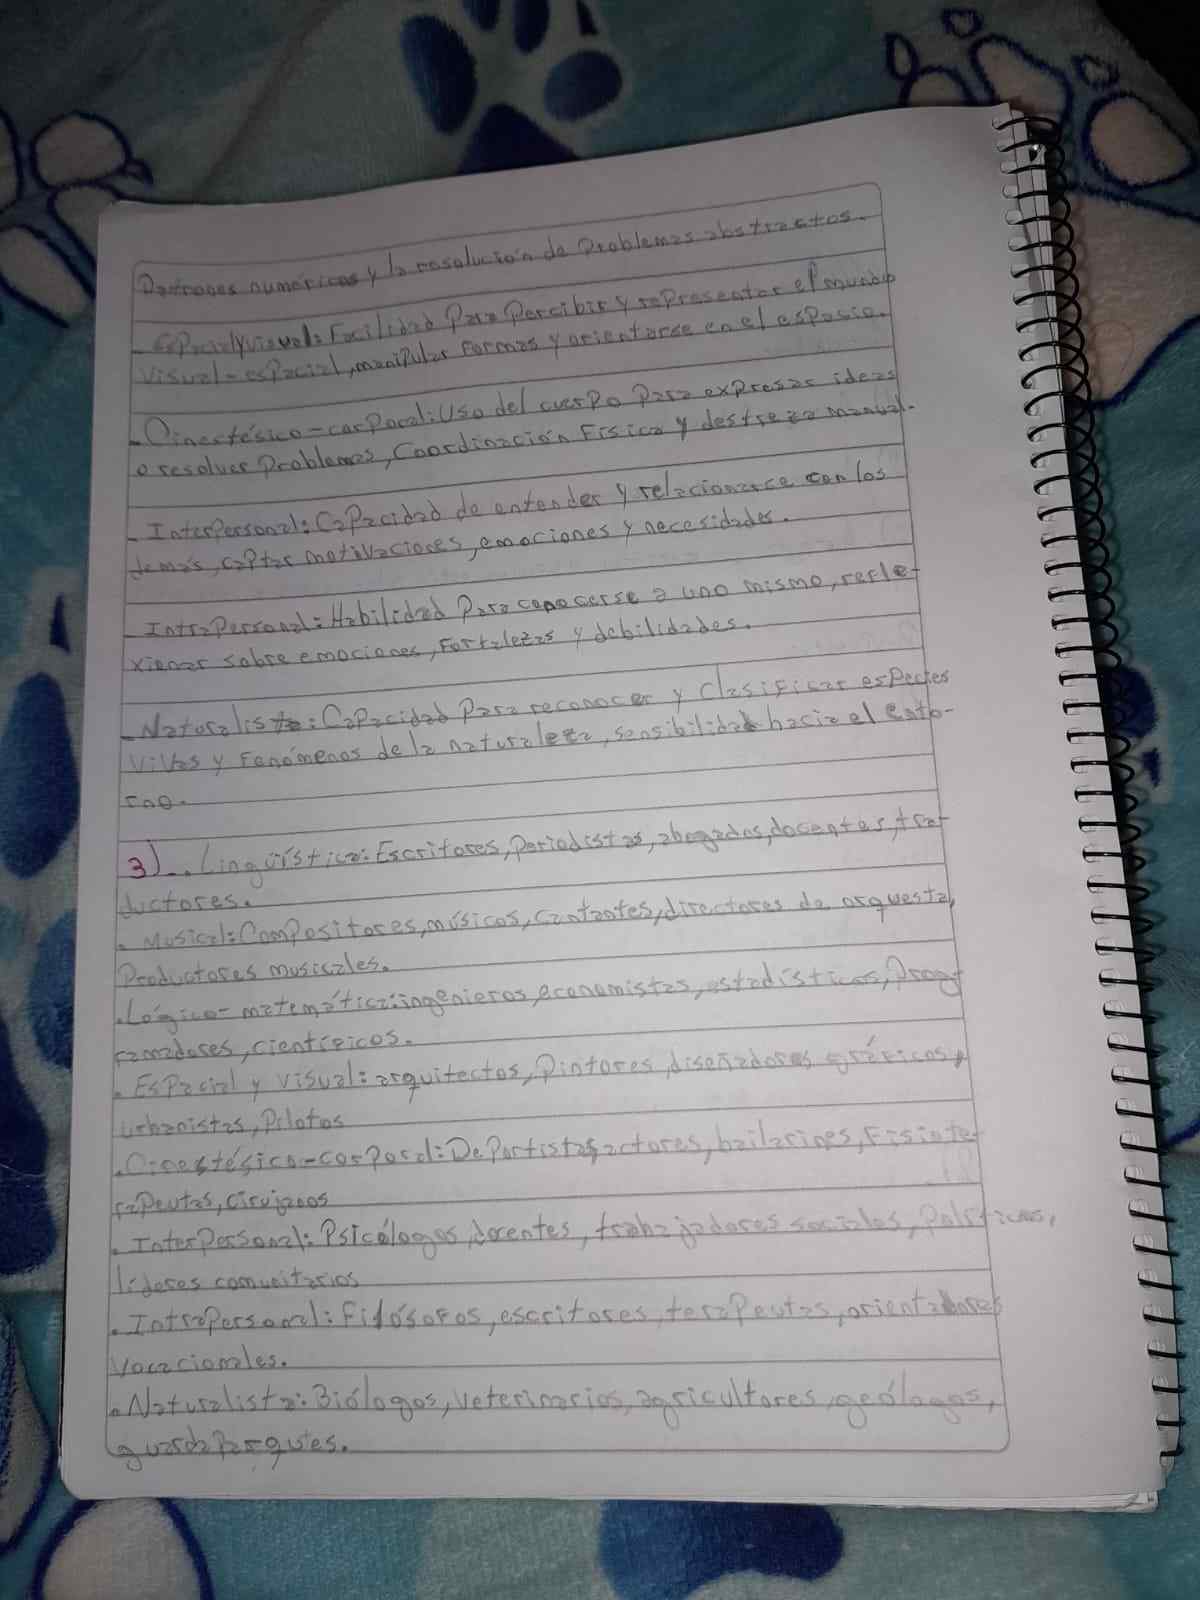 Patrones numéricos y la resolución de Problemas abstractos.
- Espacial y visual: Facilidad Para Percibir y representar el mundo
visual-espacial, manipular formas y orientarse en el espacio.
- Cinestésico-corporal: Uso del cuerpo Para expresar ideas
o resolver Problemas, Coordinación Física y destreza manual.
- InterPersonal: Capacidad de entender y relacionarse con los
demás, captar motivaciones, emociones y necesidades.
- IntraPersonal: Habilidad Para conocerse a uno mismo, refle-
xionar sobre emociones, Fortalezas y debilidades.
- Naturalista: Capacidad Para reconocer y Clasificar especies
Vivas y Fenómenos de la naturaleza, sensibilidad hacia el ento-
rno.
3) . Lingüística: Escritores, Periodistas, abogados, docentes, tra-
ductores.
. Musical: Compositores, músicos, cantantes, directores de orquesta,
Productores musicales.
. Lógico-matemática: ingenieros, economistas, estadísticos, Prog-
ramadores, científicos.
. Espacial y visual: arquitectos, Pintores, diseñadores gráficos,
urbanistas, Pilotos
. Cinestésico-corporal: Deportistas, actores, bailarines, Fisiote-
rapeutas, cirujanos
. InterPersonal: Psicólogos, docentes, trabajadores sociales, Políticos,
líderes comunitarios
. IntraPersonal: Filósofos, escritores, terapeutas, orientadores
Vocacionales.
. Naturalista: Biólogos, Veterinarios, agricultores, geólogos,
guardaParques.